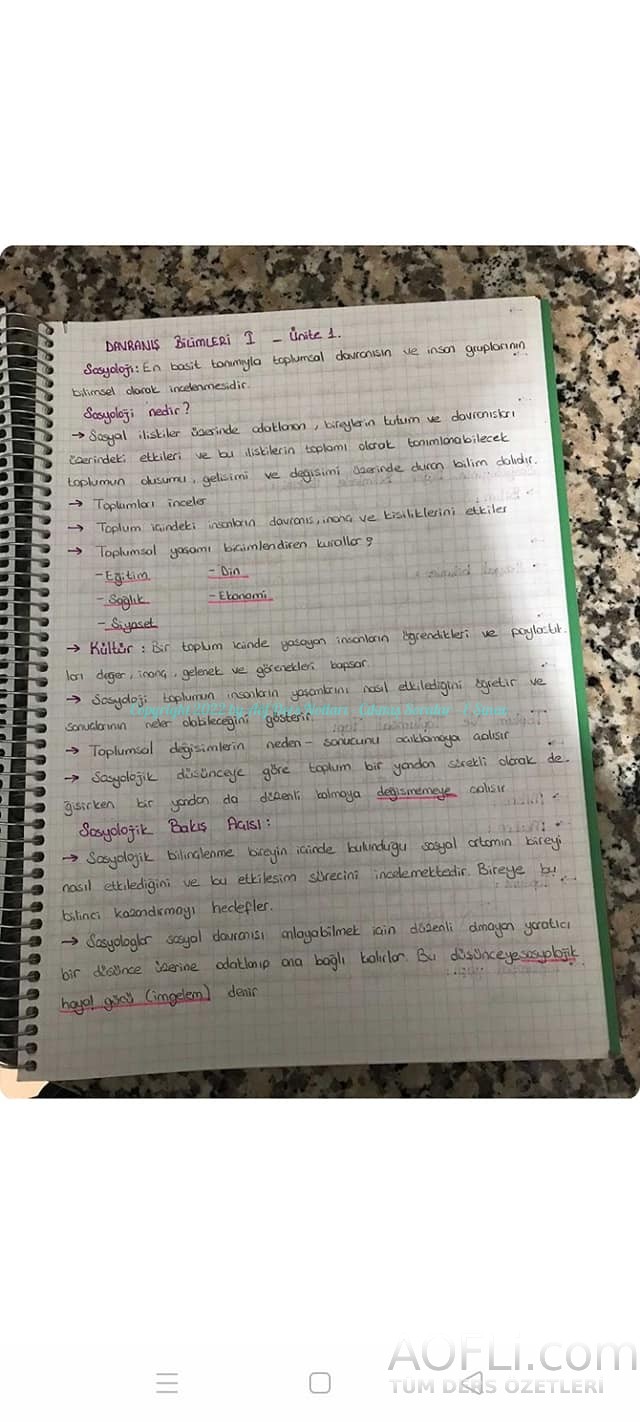 DAVRANIŞ BİLİMLERİ I - Ünite 1.
Sosyoloji: En basit tanımıyla toplumsal davranışın ve insan gruplarının
bilimsel olarak incelenmesidir.
Sosyoloji nedir?
→ Sosyal ilişkiler üzerinde odaklanan, bireylerin tutum ve davranışları
üzerindeki etkileri ve bu ilişkilerin toplamı olarak tanımlanabilecek
toplumun oluşumu, gelişimi ve değişimi üzerinde duran bilim dalıdır.
→ Toplumları inceler
→ Toplum içindeki insanların davranış, inanç ve kişiliklerini etkiler
→ Toplumsal yaşamı biçimlendiren kurallar;
- Eğitim - Din
- Sağlık - Ekonomi
- Siyaset
→ Kültür: Bir toplum içinde yaşayan insanların öğrendikleri ve paylaştık-
ları değer, inanç, gelenek ve görenekleri kapsar.
→ Sosyoloji toplumun insanların yaşamlarını nasıl etkilediğini öğretir ve
Copyright 2022 by
sonuçlarının neler olabileceğini gösterir.
→ Toplumsal değişimlerin neden - sonucunu açıklamaya çalışır
→ Sosyolojik düşünceye göre toplum bir yandan sürekli olarak de-
ğişirken bir yandan da düzenli kalmaya değişmemeye çalışır
Sosyolojik Bakış Açısı:
→ Sosyolojik bilinçlenme bireyin içinde bulunduğu sosyal ortamın bireyi
nasıl etkilediğini ve bu etkileşim sürecini incelemektedir. Bireye bu
bilinci kazandırmayı hedefler.
→ Sosyologlar sosyal davranışı anlayabilmek için düzenli olmayan yaratıcı
bir düşünce üzerine odaklanıp ona bağlı kalırlar. Bu düşünceye sosyolojik
hayal gücü (imgelem) denir
AOFLi.com
TÜM DERS ÖZETLERİ